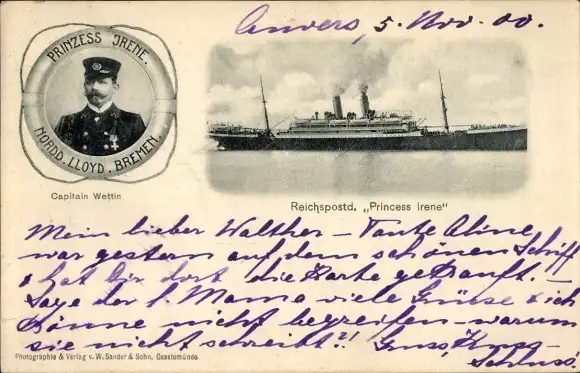 Anvers, 5. Nov. 00.
PRINZESS IRENE.
NORDD. LLOYD. BREMEN.
Capitain Wettin
Reichspostd. „Princess Irene"
Mein lieber Walther – Tante Aline
war gestern auf dem schönen Schiff
& hat Dir dort die Karte gekauft. –
Sage der l. Mama viele Grüsse & ich
könne nicht begreifen – warum
sie nicht schreibt?! Gruss, Kuss –
Schluss!
Photographie & Verlag v. W. Sander & Sohn, Geestemünde